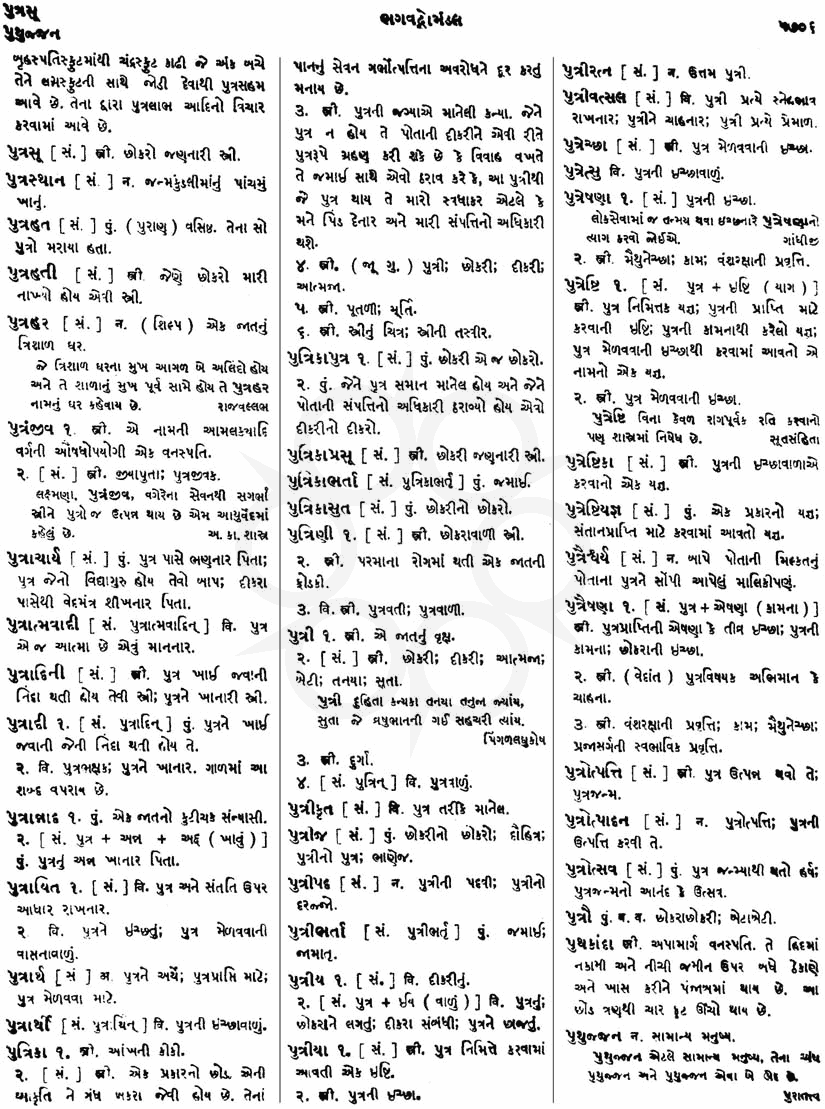 પુત્રસૂ
પુથુજ્જન
ભગવદ્ગોમંડલ
૫૭૦૬
બૃહસ્પતિસ્ફુટમાંથી ચંદ્રસ્ફુટ કાઢી જે અંક બચે
તેને લગ્નસ્ફુટની સાથે જોડી દેવાથી પુત્રસહમ
આવે છે. તેના દ્વારા પુત્રલાભ આદિનો વિચાર
કરવામાં આવે છે.
પુત્રસૂ [ સં. ] સ્ત્રી. છોકરો જણનારી સ્ત્રી.
પુત્રસ્થાન [ સં. ] ન. જન્મકુંડલીમાંનું પાંચમું
ખાનું.
પુત્રહત [ સં. ] પું. ( પુરાણ ) વસિષ્ઠ. તેના સો
પુત્રો મરાયા હતા.
પુત્રહતી [ સં. ] સ્ત્રી. જેણે છોકરો મારી
નાખ્યો હોય એવી સ્ત્રી.
પુત્રહર [ સં. ] ન. ( શિલ્પ ) એક જાતનું
ત્રિશાળ ઘર.
જે ત્રિશાળ ઘરના મુખ આગળ બે અલિંદો હોય
અને તે શાળાનું મુખ પૂર્વ સામે હોય તે પુત્રહર
નામનું ઘર કહેવાય છે. રાજવલ્લભ
પુત્રંજીવ ૧. સ્ત્રી. એ નામની આમલક્યાદિ
વર્ગની ઔષધોપયોગી એક વનસ્પતિ.
૨. [ સં. ] સ્ત્રી. જીયાપુતા; પુત્રજીવક.
લક્ષ્મણા, પુત્રંજીવ, વગેરેના સેવનથી સગર્ભા
સ્ત્રીને પુત્રો જ ઉત્પન્ન થાય છે એમ આયુર્વેદમાં
કહેલું છે. અ. કા. શાસ્ત્ર
પુત્રાચાર્ય [ સં. ] પું. પુત્ર પાસે ભણનાર પિતા;
પુત્ર જેનો વિદ્યાગુરુ હોય તેવો બાપ; દીકરા
પાસેથી વેદમંત્ર શીખનાર પિતા.
પુત્રાત્મવાદી [ સં. પુત્રાત્મવાદિન્ ] વિ. પુત્ર
એ જ આત્મા છે એવું માનનાર.
પુત્રાદિની [ સં. ] સ્ત્રી. પુત્ર ખાઈ જવાની
નિંદા થતી હોય તેવી સ્ત્રી; પુત્રને ખાનારી સ્ત્રી.
પુત્રાદી ૧. [ સં. પુત્રાદિન્ ] પું. પુત્રને ખાઈ
જવાની જેની નિંદા થતી હોય તે.
૨. વિ. પુત્રભક્ષક; પુત્રને ખાનાર. ગાળમાં આ
શબ્દ વપરાય છે.
પુત્રાન્નાદ ૧. પું. એક જાતનો કુટીચક સંન્યાસી.
૨. [ સં. પુત્ર + અન્ન + અદ્ ( ખાવું ) ]
પું. પુત્રનું અન્ન ખાનાર પિતા.
પુત્રાયિત ૧. [ સં. ] વિ. પુત્ર અને સંતતિ ઉપર
આધાર રાખનાર.
૨ વિ. પુત્રને ઇચ્છતું; પુત્ર મેળવવાની
વાસનાવાળું.
પુત્રાર્થ [ સં ] અ. પુત્રને અર્થે; પુત્રપ્રાપ્તિ માટે;
પુત્ર મેળવવા માટે.
પુત્રાર્થી [ સં. પુત્રાર્થિન્ ] વિ. પુત્રની ઇચ્છાવાળું.
પુત્રિકા ૧. સ્ત્રી. આંખની કીકી.
૨. [ સં. ] સ્ત્રી. એક પ્રકારનો છોડ. એની
આકૃતિ ને ગંધ બકરા જેવી હોય છે. તેનાં
પાનનું સેવન ગર્ભોત્પત્તિના અવરોધને દૂર કરતું
મનાય છે.
૩. સ્ત્રી. પુત્રની જગ્યાએ માનેલી કન્યા. જેને
પુત્ર ન હોય તે પોતાની દીકરીને એવી રીતે
પુત્રરૂપે ગ્રહણ કરી શકે છે કે વિવાહ વખતે
તે જમાઈ સાથે એવો ઠરાવ કરે કે, આ પુત્રીથી
જે પુત્ર થાય તે મારો સ્વધાકર એટલે કે
મને પિંડ દેનાર અને મારી સંપત્તિનો અધિકારી
થશે.
૪. સ્ત્રી. ( જૂ ગુ. ) પુત્રી; છોકરી; દીકરી;
આત્મજા.
૫. સ્ત્રી. પૂતળી; મૂર્તિ.
૬. સ્ત્રી. સ્ત્રીનું ચિત્ર; સ્ત્રીની તસ્વીર.
પુત્રિકાપુત્ર ૧. [ સં. ] પું. છોકરી એ જ છોકરો.
૨. પું. જેને પુત્ર સમાન માનેલ હોય અને જેને
પોતાની સંપત્તિનો અધિકારી ઠરાવ્યો હોય એવો
દીકરીનો દીકરો.
પુત્રિકાપ્રસૂ [ સં. ] સ્ત્રી. છોકરી જણનારી સ્ત્રી.
પુત્રિકાભર્તા [ સં. પુત્રિકાભર્તૃ ] પું. જમાઈ.
પુત્રિકાસુત [ સં. ] પું. છોકરીનો છોકરો.
પુત્રિણી ૧. [ સં. ] સ્ત્રી. છોકરાવાળી સ્ત્રી.
૨. સ્ત્રી. પરમાના રોગમાં થતી એક જાતની
ફોડકી.
૩. વિ. સ્ત્રી. પુત્રવતી; પુત્રવાળી.
પુત્રી ૧. સ્ત્રી. એ જાતનું વૃક્ષ.
૨. [ સં. ] સ્ત્રી. છોકરી; દીકરી; આત્મજા;
બેટી; તનયા; સુતા.
પુત્રી દુહિતા કન્યકા તનયા તનુજ જ્યાંય,
સુતા જે વ્રષુભાનની ગઈ સહચરી ત્યાંય.
પિંગળલઘુકોષ
૩. સ્ત્રી. દુર્ગા.
૪. [ સં. પુત્રિન્ ] વિ. પુત્રવાળું.
પુત્રીકૃત [ સં. ] વિ. પુત્ર તરીકે માનેલ.
પુત્રીજ [ સં. ] પું. છોકરીનો છોકરો; દૌહિત્ર;
પુત્રીનો પુત્ર; ભાણેજ.
પુત્રીપદ [ સં. ] ન. પુત્રીની પદવી; પુત્રીનો
દરજ્જો.
પુત્રીભર્તા [ સં. પુત્રીભર્તૃ ] પું. જમાઈ;
જામાતૃ.
પુત્રીય ૧. [ સં. ] વિ. દીકરીનું.
૨. [ સં. પુત્ર + ઈય ( વાળું ) ] વિ. પુત્રનું;
છોકરાને લગતું; દીકરા સંબંધી; પુત્રને છાજતું.
પુત્રીયા ૧. [ સં. ] સ્ત્રી. પુત્ર નિમિત્તે કરવામાં
આવતી એક ઇષ્ટિ.
૨. સ્ત્રી. પુત્રની ઇચ્છા.
પુત્રીરત્ન [ સં. ] ન. ઉત્તમ પુત્રી.
પુત્રીવત્સલ [ સં. ] વિ. પુત્રી પ્રત્યે સ્નેહભાવ
રાખનાર; પુત્રીને ચાહનાર; પુત્રી પ્રત્યે પ્રેમાળ.
પુત્રેચ્છા [ સં. ] સ્ત્રી. પુત્ર મેળવવાની ઇચ્છા.
પુત્રેત્સુ વિ. પુત્રની ઇચ્છાવાળું.
પુત્રેષણા ૧. [ સં. ] પુત્રની ઇચ્છા.
લોકસેવામાં જ તન્મય થવા ઇચ્છનારે પુત્રેષણાનો
ત્યાગ કરવો જોઈએ. ગાંધીજી
૨. સ્ત્રી. મૈથુનેચ્છા; કામ; વંશરક્ષાની પ્રવૃત્તિ.
પુત્રેષ્ટિ ૧. [ સં. પુત્ર + ઇષ્ટિ ( યાગ ) ]
સ્ત્રી. પુત્ર નિમિત્તક યજ્ઞ; પુત્રની પ્રાપ્તિ માટે
કરવાની ઇષ્ટિ; પુત્રની કામનાથી કરેલો યજ્ઞ;
પુત્ર મેળવવાની ઇચ્છાથી કરવામાં આવતો એ
નામનો એક યજ્ઞ.
૨. સ્ત્રી. પુત્ર મેળવવાની ઇચ્છા.
પુત્રેષ્ટિ વિના કેવળ રાગપૂર્વક રતિ કરવાનો
પણ શાસ્ત્રમાં નિષેધ છે. સૂતસંહિતા
પુત્રેષ્ટિકા [ સં. ] સ્ત્રી. પુત્રની ઇચ્છાવાળાએ
કરવાનો એક યજ્ઞ.
પુત્રેષ્ટિયજ્ઞ [ સં. ] પું. એક પ્રકારનો યજ્ઞ;
સંતાનપ્રાપ્તિ માટે કરવામાં આવતો યજ્ઞ.
પુત્રૈશ્વર્ય [ સં. ] ન. બાપે પોતાની મિલ્કતનું
પોતાના પુત્રને સોંપી આપેલું માલિકીપણું.
પુત્રૈષણા ૧. [ સં. પુત્ર + એષણા ( કામના ) ]
સ્ત્રી. પુત્રપ્રાપ્તિની એષણા કે તીવ્ર ઇચ્છા; પુત્રની
કામના; છોકરાની ઇચ્છા.
૨. સ્ત્રી. ( વેદાંત ) પુત્રવિષયક અભિમાન કે
ચાહના.
૩. સ્ત્રી. વંશરક્ષાની પ્રવૃત્તિ; કામ; મૈથુનેચ્છા;
પ્રજાસર્ગની સ્વભાવિક પ્રવૃત્તિ.
પુત્રોત્પત્તિ [ સં. ] સ્ત્રી. પુત્ર ઉત્પન્ન થવો તે;
પુત્રજન્મ.
પુત્રોત્પાદન [ સં. ] ન. પુત્રોત્પત્તિ; પુત્રની
ઉત્પત્તિ કરવી તે.
પુત્રોત્સવ [ સં. ] પું. પુત્ર જન્મ્યાથી થતો હર્ષ;
પુત્રજન્મનો આનંદ કે ઉત્સવ.
પુત્રૌ પું. બ. વ. છોકરાછોકરી; બેટાબેટી.
પુથકાંદા સ્ત્રી. અપામાર્ગ વનસ્પતિ. તે હિંદમાં
નકામી અને નીચી જમીન ઉપર બધે ઠેકાણે
અને ખાસ કરીને પંજાબમાં થાય છે. આ
છોડ ત્રણથી ચાર ફૂટ ઊંચો થાય છે.
પુથુજ્જન ન. સામાન્ય મનુષ્ય.
પુથુજ્જન એટલે સામાન્ય મનુષ્ય, તેના અંધ
પુથુજ્જન અને પુથુજ્જન એવા બે ભેદ છે.
પુરાતત્ત્વ